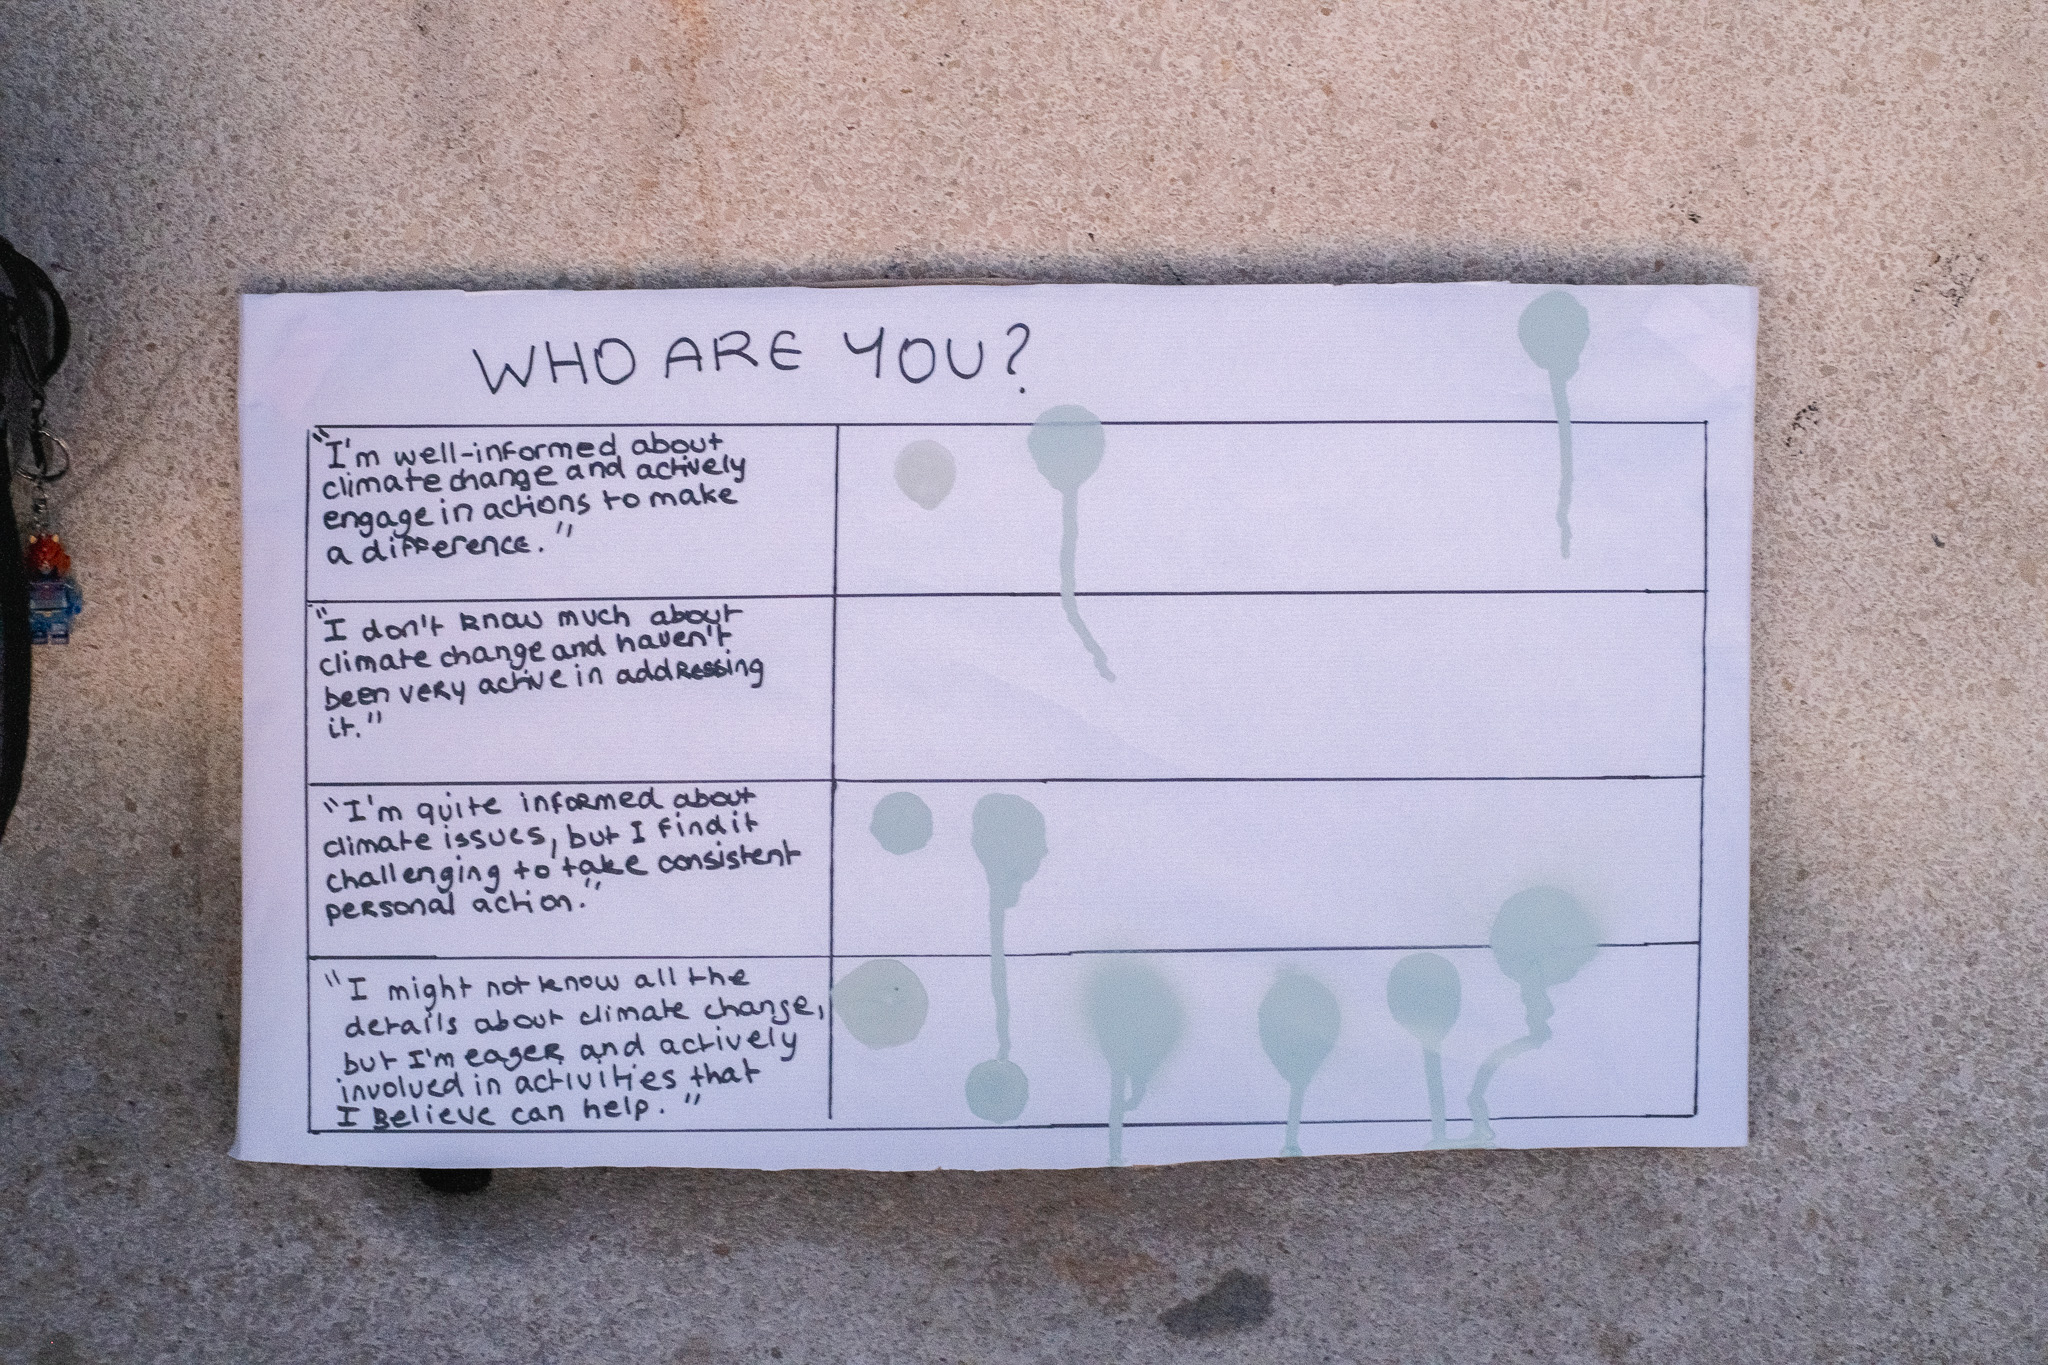 WHO ARE YOU?
"I'm well-informed about
climate change and actively
engage in actions to make
a difference."
"I don't know much about
climate change and haven't
been very active in addressing
it."
"I'm quite informed about
climate issues, but I find it
challenging to take consistent
personal action."
"I might not know all the
details about climate change,
but I'm eager and actively
involved in activities that
I Believe can help."